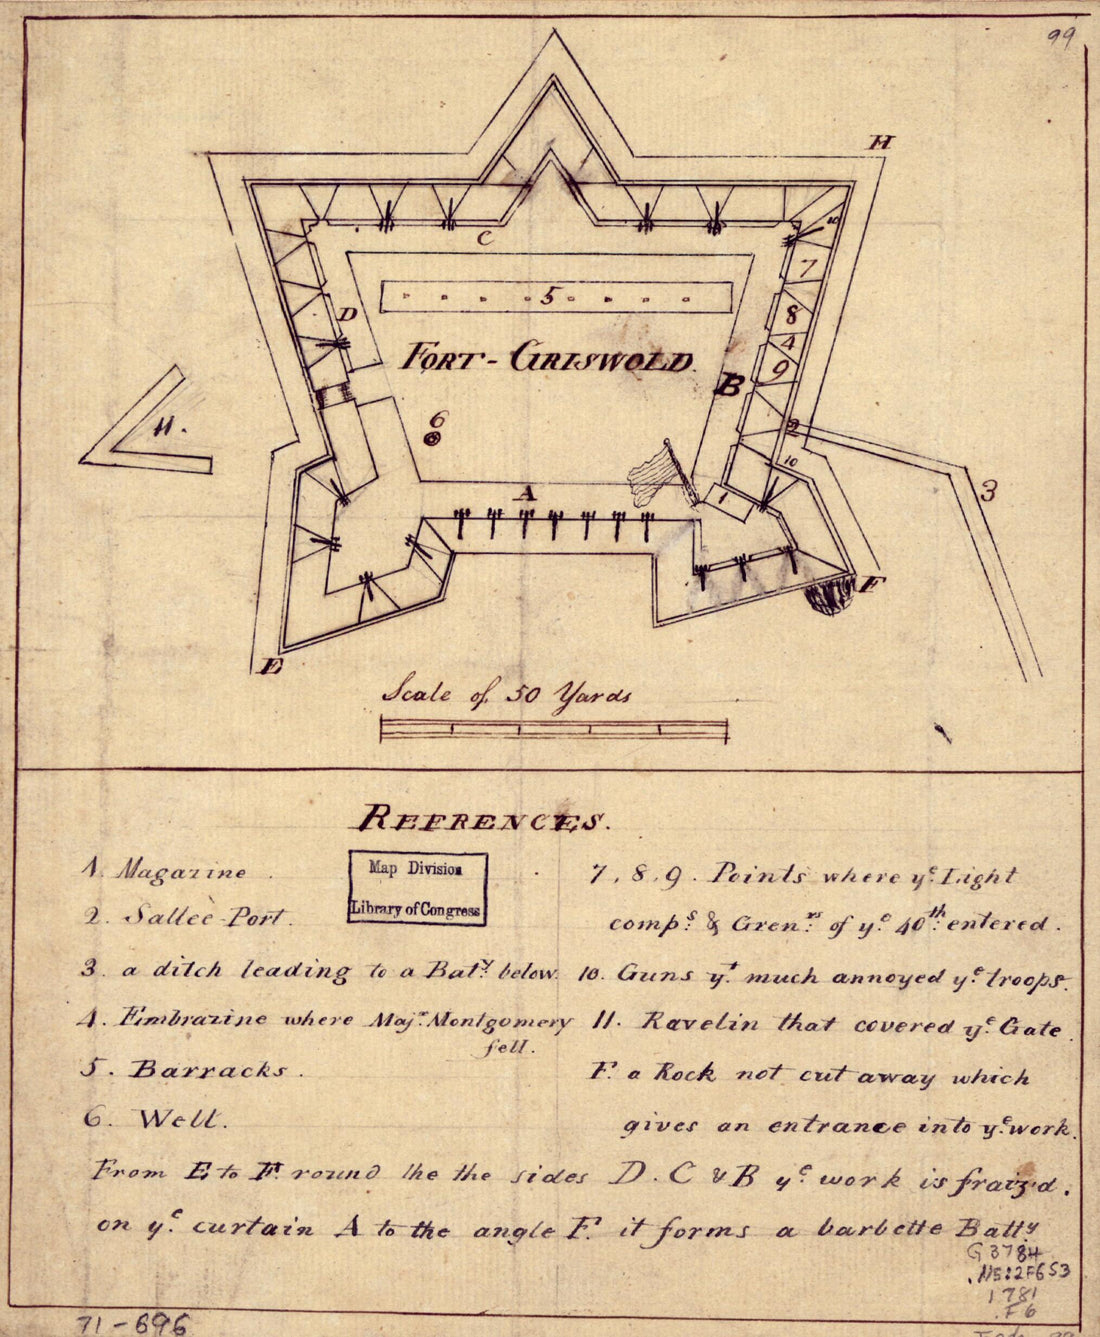 99
H
10
C
7
5
8
D
4
FORT-GRISWOLD.
9
B
11.
6
2
10
3
A
1
F
E
Scale of 50 Yards
REFRENCES.
1. Magazine.
Map Division
Library of Congress
2. Sallèe-Port.
3. a ditch leading to a Bat.y below.
4. Embrazine where Maj.r Montgomery
fell.
5. Barracks.
6. Well.
7, 8, 9. Points where y.e Light
comp.s & Gren.rs of y.e 40th entered.
10. Guns y.t much annoyed y.e troops.
11. Ravelin that covered y.e Gate.
F. a Rock not cut away which
gives an entrance into y.e work.
From E to F. round the the sides D. C & B y.e work is fraiz'd.
on y.e curtain A to the angle F. it forms a barbette Batt.y
G3784
.N5:2F6S3
1781
.F6
71-696